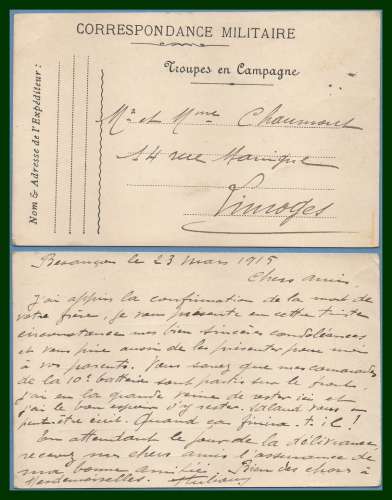 CORRESPONDANCE MILITAIRE
Troupes en Campagne
Nom & Adresse de l'Expéditeur :
Mr et Mme Chaumont
14 rue
Limoges
Besançon le 23 mars 1915
Chers amis
J'ai appris la confirmation de la mort de
votre frère, je vous présente en cette triste
circonstance mes bien sincères condoléances,
et vous prie aussi de les présenter pour moi
à vos parents. Vous savez que mes camarades
de la 10e batterie sont partis sur le front.
J'ai eu la grande veine de rester ici et
j'ai le bon espoir d'y rester
peut-être cuit. Quand ça finira-t-il !
En attendant le jour de la délivrance
recevez mes chers amis l'assurance de
ma bonne amitié. Bien des choses à
Mesdemoiselles.